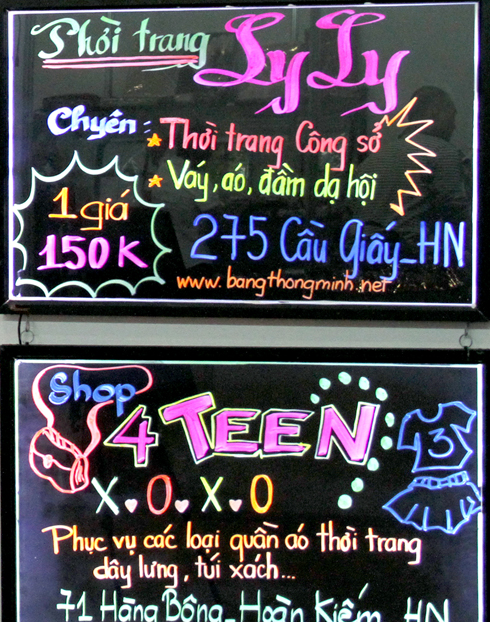 Thời trang LyLy
Chyên : Thời trang Công sở
Váy, aó, đầm dạ hội
1 giá
150K
275 Cầu Giấy_HN
www.bangthongminh.net
Shop
4 TEEN
3
X.O.X.O
Phục vụ các loại quần aó thời trang
dây lưng, túi xách...
71 Hàng Bông_Hoàn Kiếm_HN